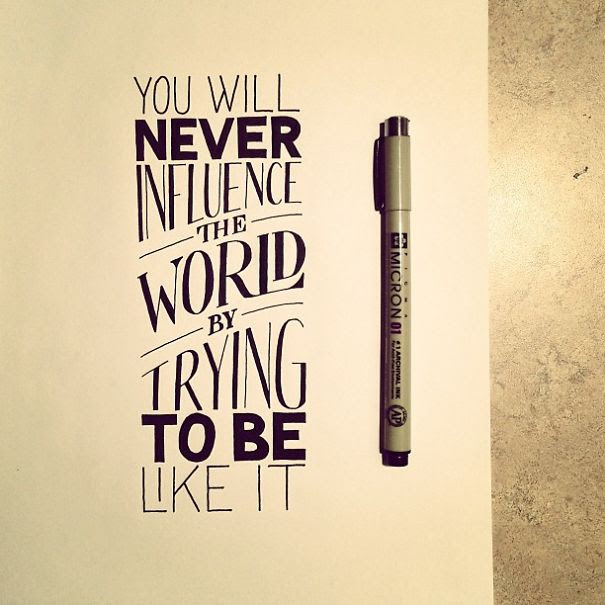 YOU WILL
NEVER
INFLUENCE
THE
WORLD
BY
TRYING
TO BE
LIKE IT
PIGMA
MICRON 01
#1 ARCHIVAL INK
AP